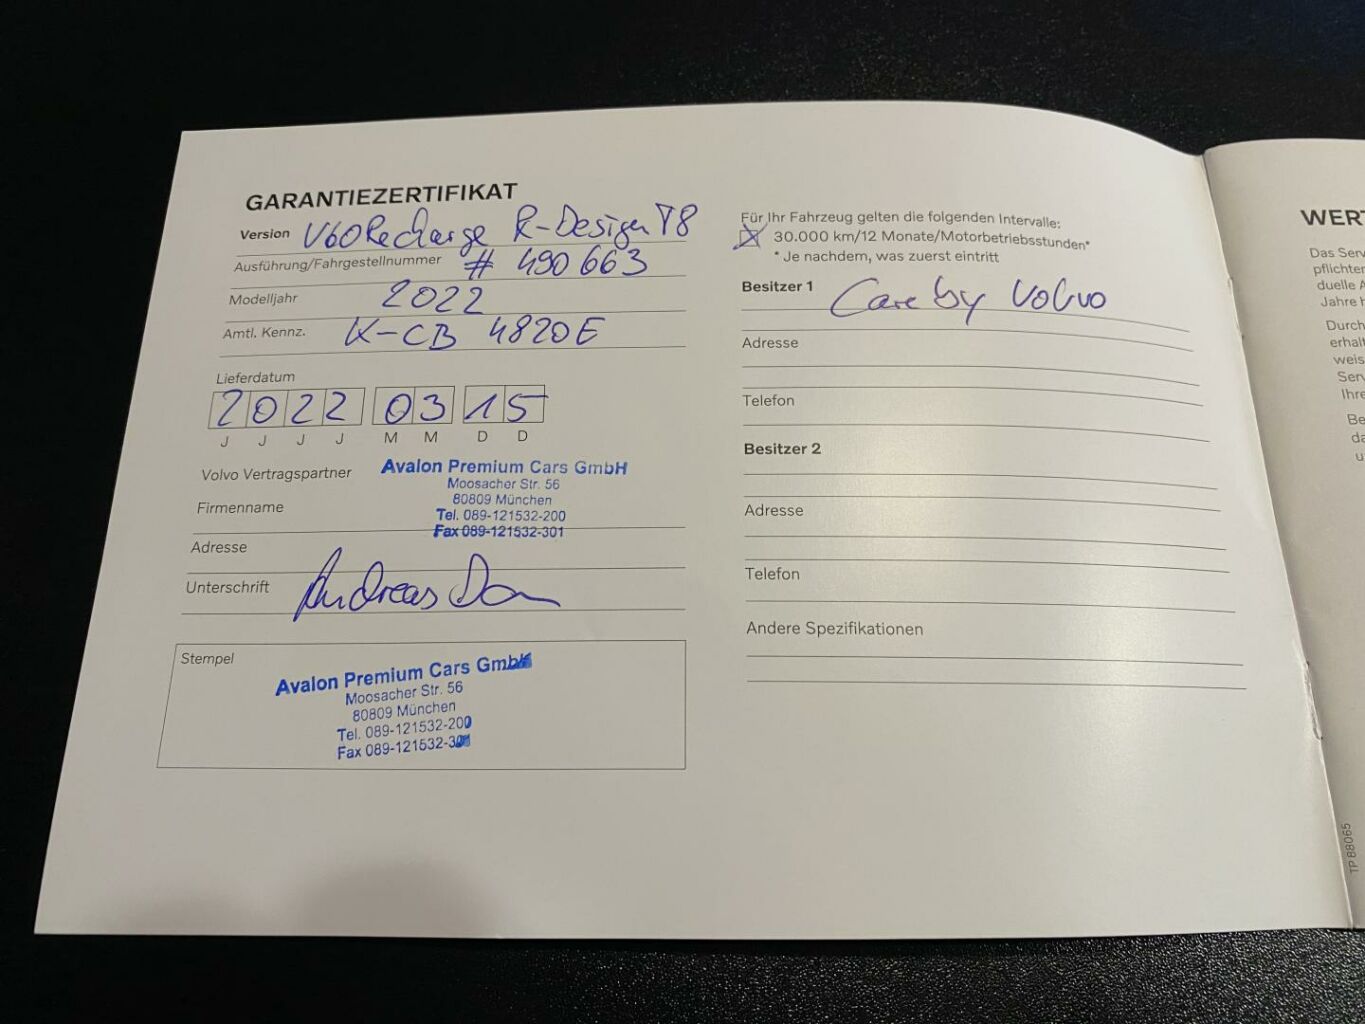 GARANTIEZERTIFIKAT
Version V60 Recharge R-Design T8
Ausführung/Fahrgestellnummer # 490 663
Modelljahr 2022
Amtl. Kennz. K-CB 4820E
Lieferdatum
2022 03 15
J J J J M M D D
Volvo Vertragspartner
Firmenname
Avalon Premium Cars GmbH
Moosacher Str. 56
80809 München
Tel. 089-121532-200
Fax 089-121532-301
Adresse
Unterschrift Andreas
Stempel
Avalon Premium Cars GmbH
Moosacher Str. 56
80809 München
Tel. 089-121532-200
Fax 089-121532-301
Für Ihr Fahrzeug gelten die folgenden Intervalle:
30.000 km/12 Monate/Motorbetriebsstunden*
* Je nachdem, was zuerst eintritt
Besitzer 1 Care by Volvo
Adresse
Telefon
Besitzer 2
Adresse
Telefon
Andere Spezifikationen
WER
Das Serv
pflichte
duelle A
Jahre h
Durch
erhalt
weis
Serv
Ihre
Be
da
u
TP 88065